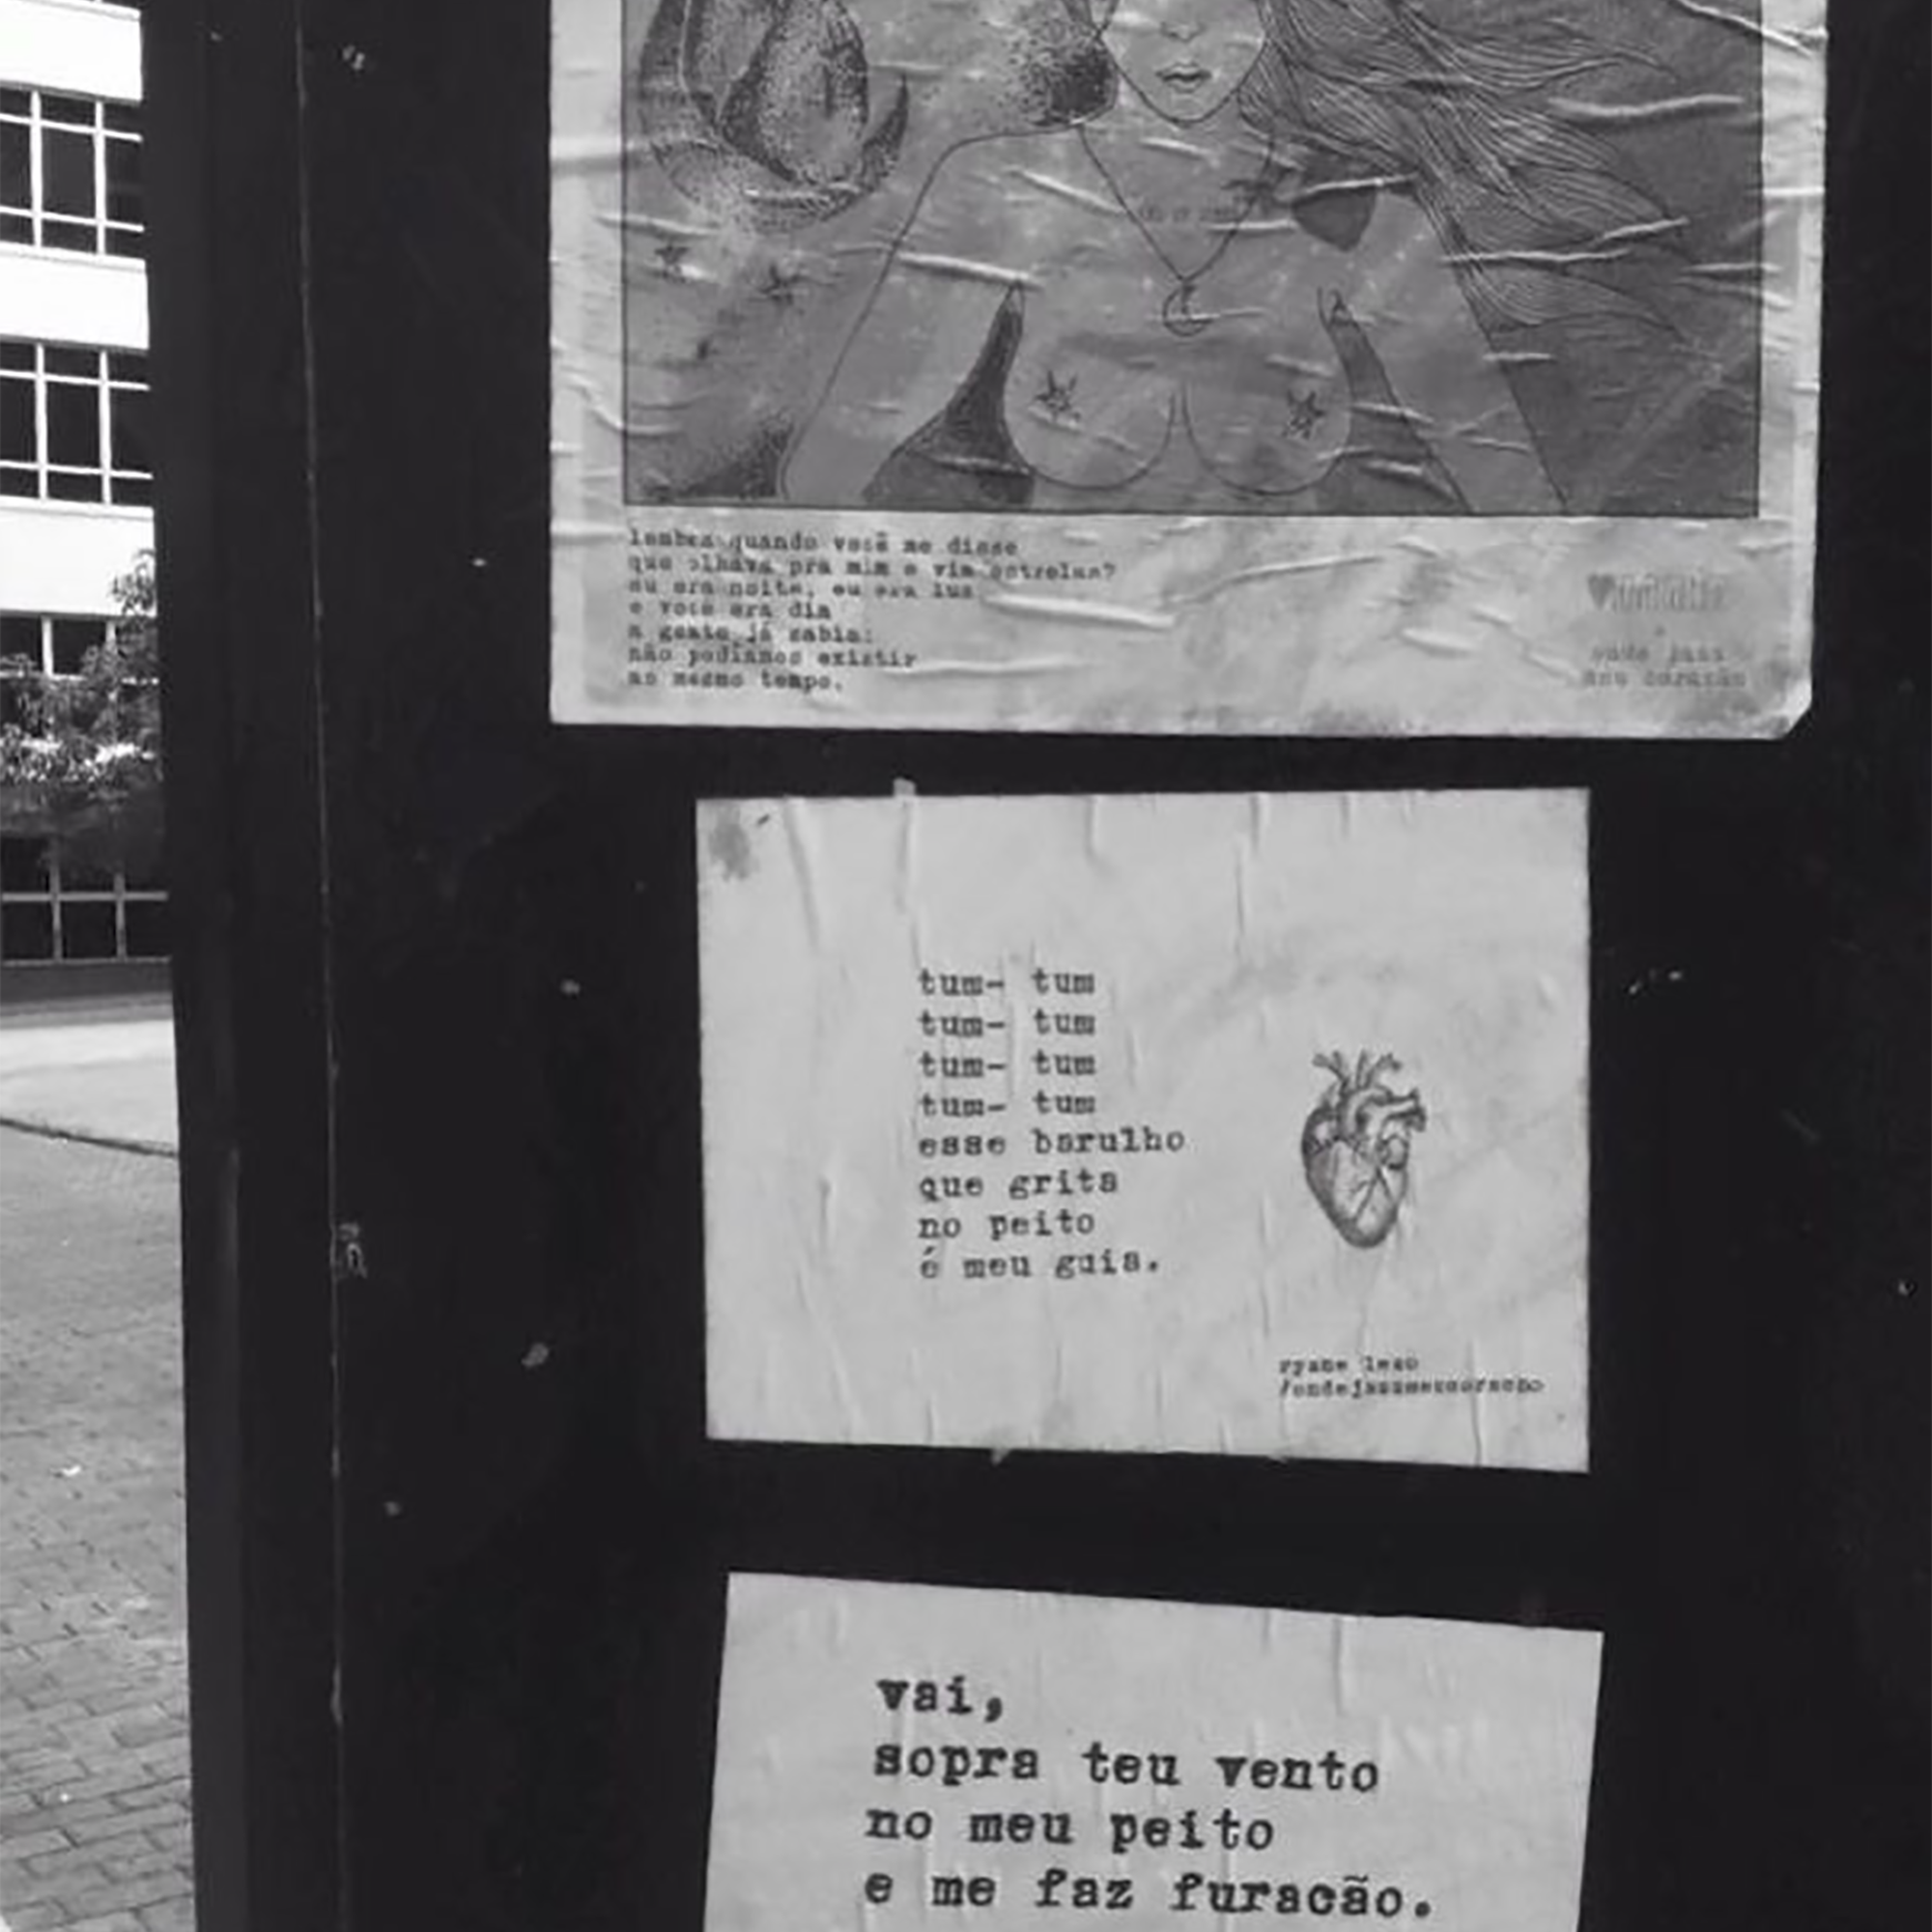 lembra quando você me disse
que olhava pra mim e via estrelas?
eu era noite, eu era lua
e você era dia
a gente já sabia:
não podíamos existir
ao mesmo tempo.
onde jazz
meu coração
tum- tum
tum- tum
tum- tum
tum- tum
esse barulho
que grita
no peito
é meu guia.
ryane leão
/ondejazzmeucoracao
vai,
sopra teu vento
no meu peito
e me faz furacão.